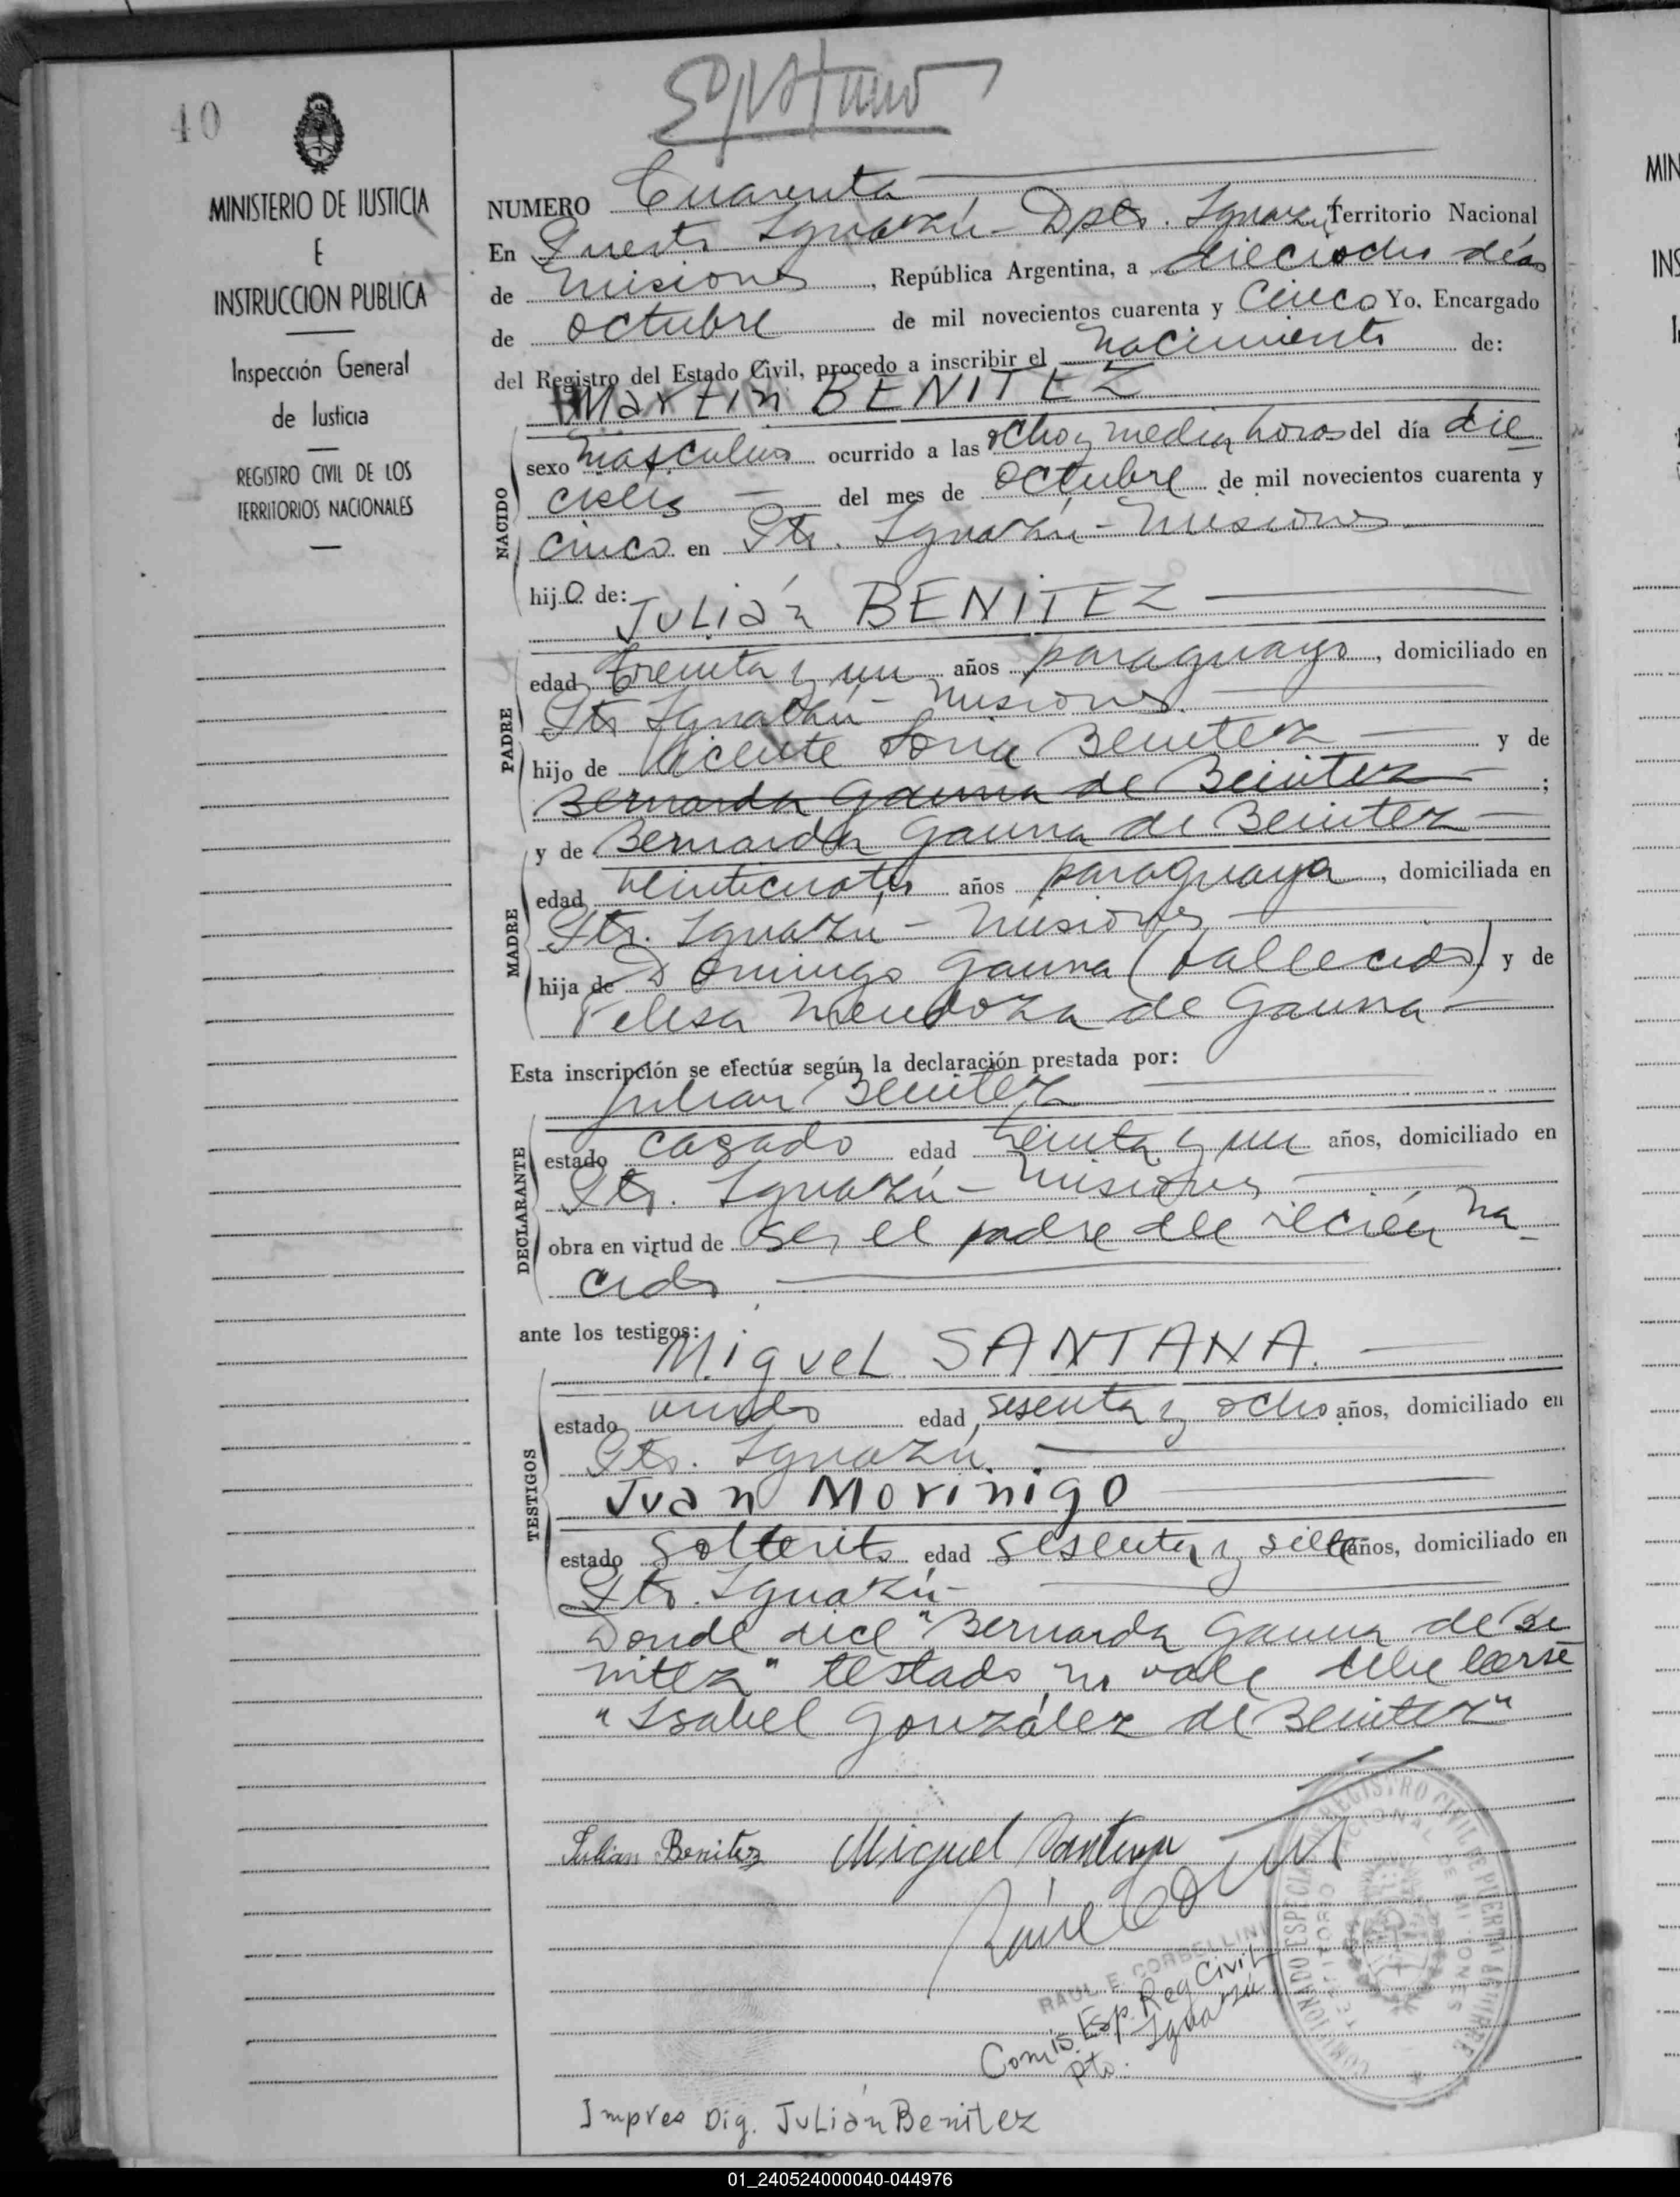 40
MINISTERIO DE JUSTICIA
E
INSTRUCCION PUBLICA
Inspección General
de Justicia
REGISTRO CIVIL DE LOS
TERRITORIOS NACIONALES
NUMERO Cuarenta
En Puerto Iguazú - Dpto. Iguazú Territorio Nacional
de Misiones, República Argentina, a dieciocho días
de octubre de mil novecientos cuarenta y cinco Yo, Encargado
del Registro del Estado Civil, procedo a inscribir el nacimiento de:
Martin BENITEZ
NACIDO
sexo masculino ocurrido a las ocho y media horas del día die
ciseis del mes de octubre de mil novecientos cuarenta y
cinco en Pto. Iguazú - Misiones
hijo de:
JULián BENITEZ
PADRE
edad treinta y un años paraguayo, domiciliado en
Pto Iguazú - Misiones
hijo de Vicente Soria Benitez y de
Bernarda Gauna de Beinitez ;
MADRE
y de Bernarda Gauna de Beinitez
edad veinticuatro años paraguaya, domiciliada en
Pto. Iguazú - Misiones
hija de Domingo Gauna (fallecido) y de
Felisa Mendoza de Gauna
Esta inscripción se efectúa según la declaración prestada por:
Julian Benitez
DECLARANTE
estado casado edad treinta y un años, domiciliado en
Pto. Iguazú - Misiones
obra en virtud de ser el padre del recién na
cido
ante los testigos:
MigueL SANTANA.
TESTIGOS
estado viudo edad sesenta y ocho años, domiciliado en
Pto. Iguazú
Juan Morinigo
estado solterito edad sesenta y siete años, domiciliado en
Pto. Iguazú
Donde dice "Bernarda Gauna de Be
nitez" testado no vale debe leerse
"Isabel González de Beinitez"
Julian Benitez Miguel Santana
RAUL E. CORBELLINI
Comis. Esp. Reg Civil
Pto. Iguazú
COMISIONADO ESPECIAL DE REGISTRO CIVIL DE PUERTO AGUIRRE
TERRITORIO NACIONAL DE MISIONES
Impres Dig. JuLián Benitez
01_240524000040-044976